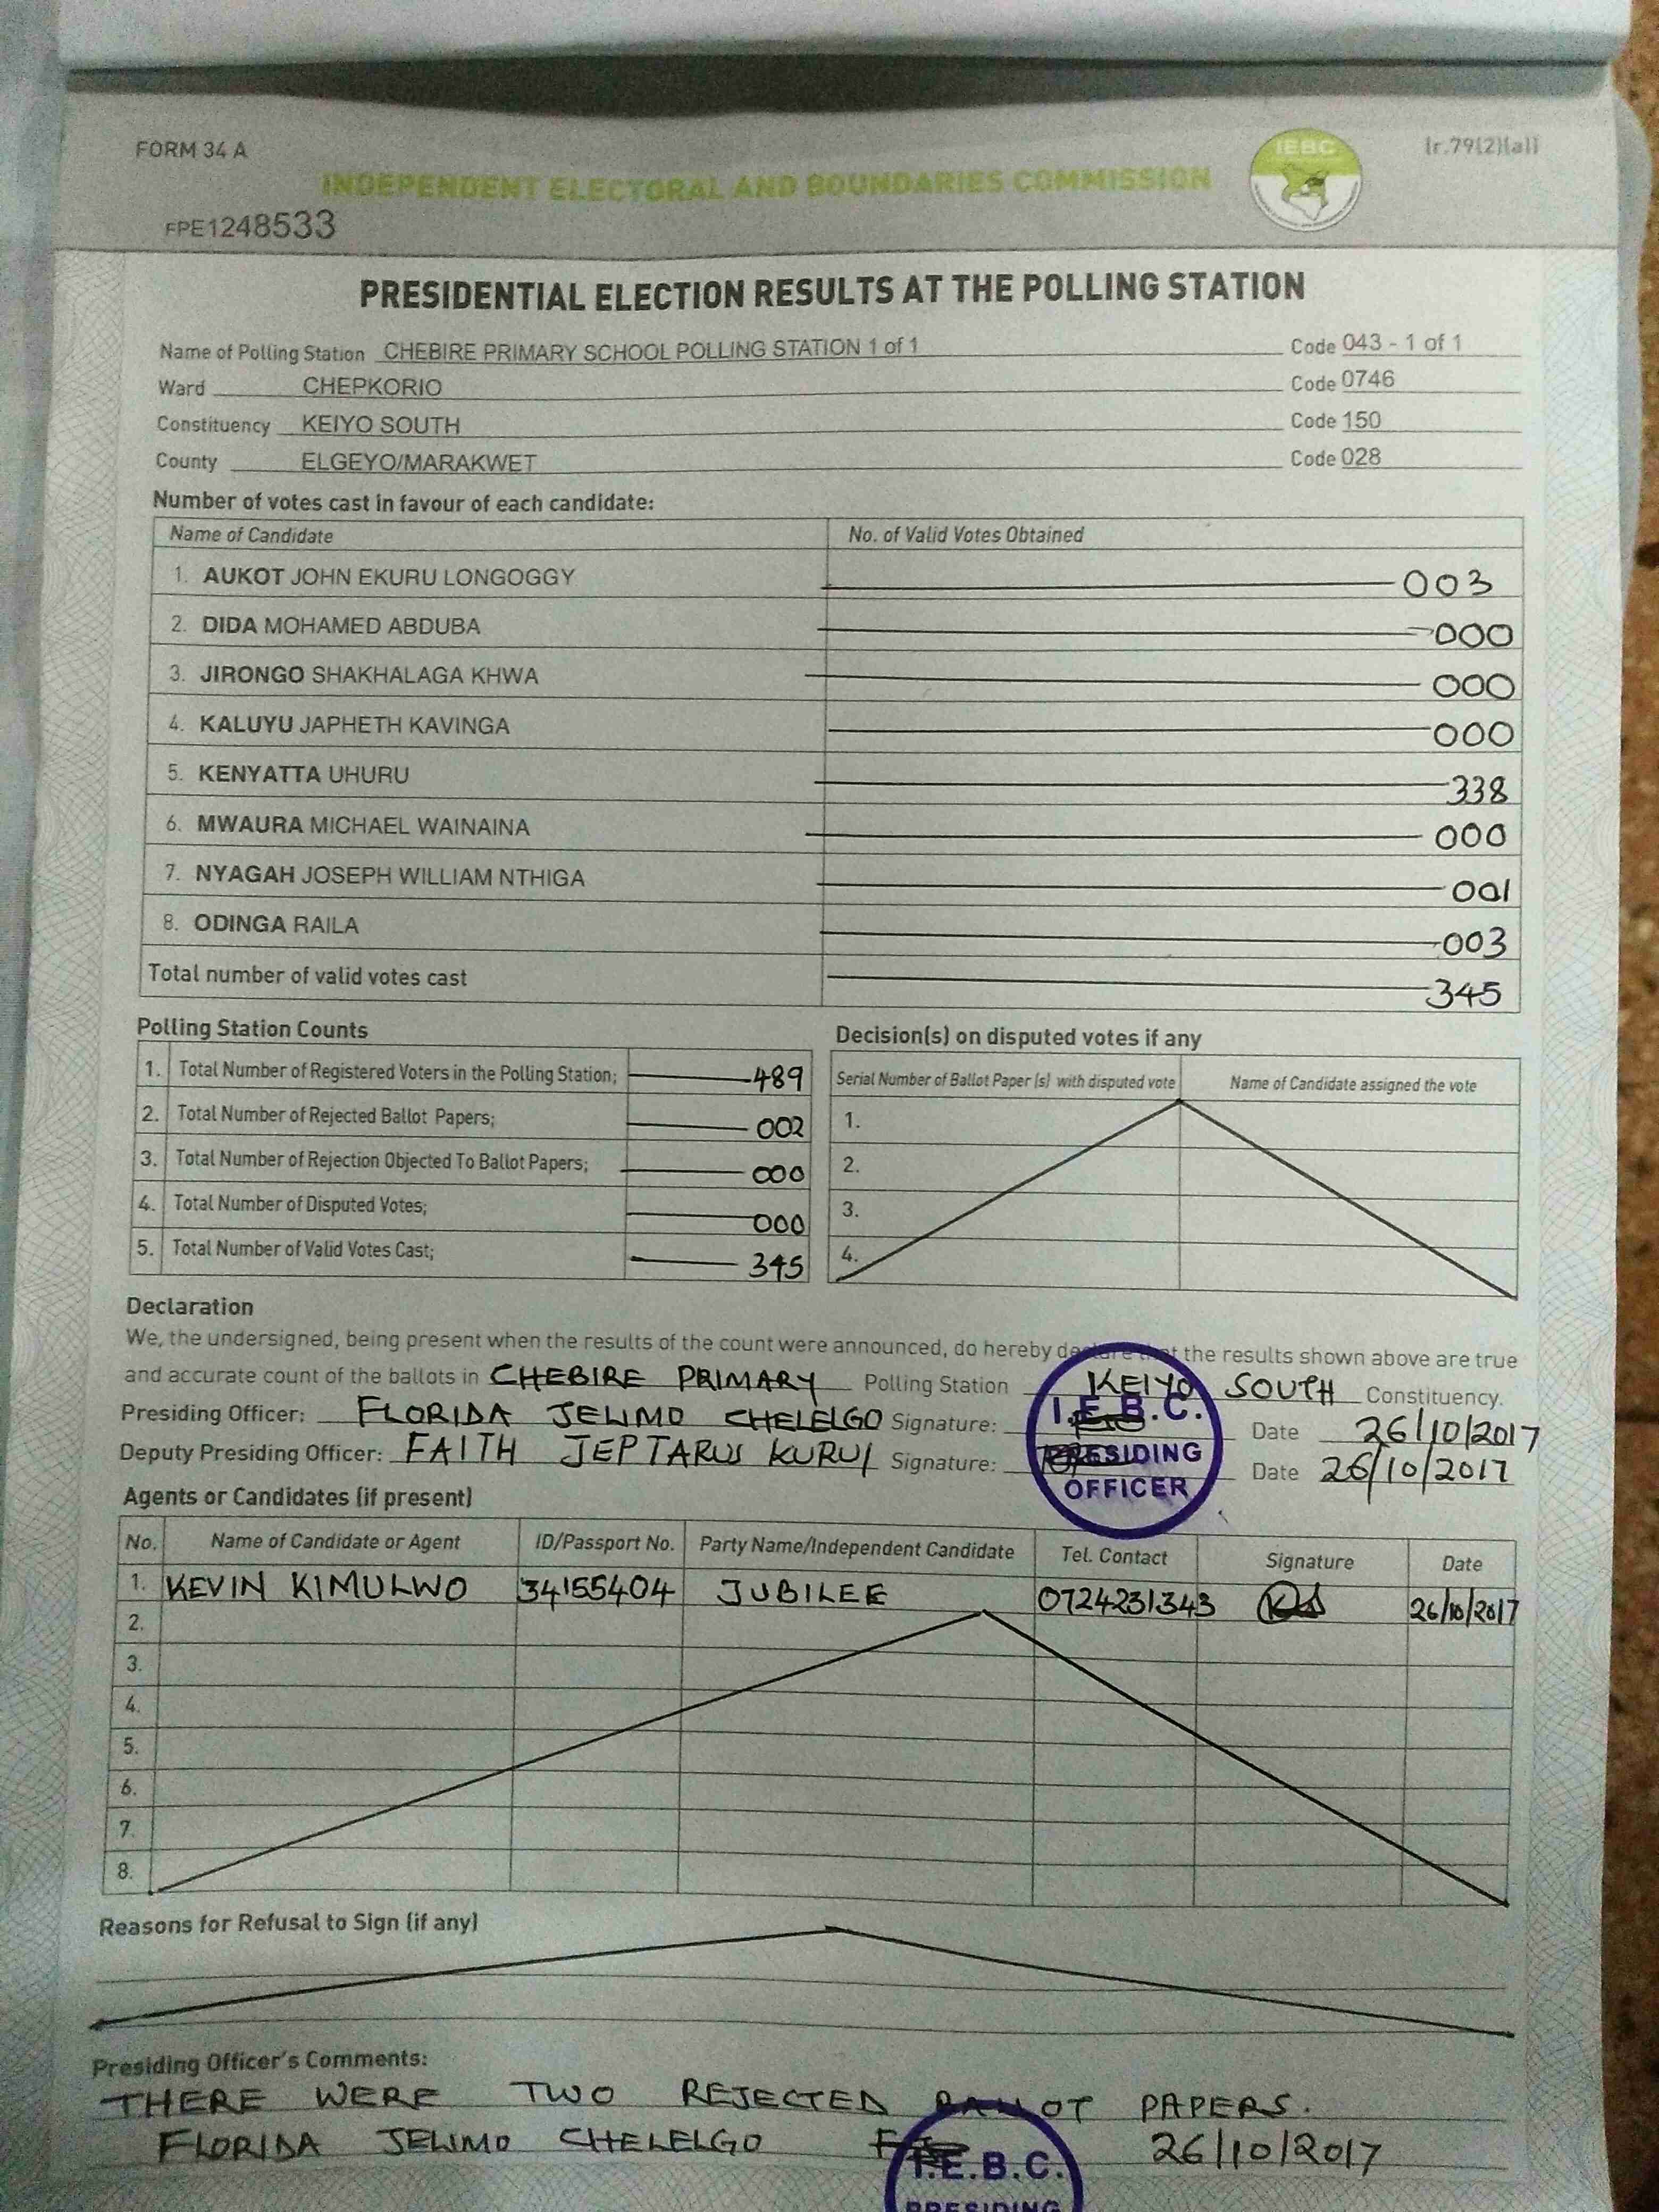 FORM 34 A
IEBC
(r.79(2)(a))
INDEPENDENT ELECTORAL AND BOUNDARIES COMMISSION
FPE1248533
PRESIDENTIAL ELECTION RESULTS AT THE POLLING STATION
Name of Polling Station CHEBIRE PRIMARY SCHOOL POLLING STATION 1 of 1 Code 043 - 1 of 1
Ward CHEPKORIO Code 0746
Constituency KEIYO SOUTH Code 150
County ELGEYO/MARAKWET Code 028
Number of votes cast in favour of each candidate:
Name of Candidate No. of Valid Votes Obtained
1. AUKOT JOHN EKURU LONGOGGY 003
2. DIDA MOHAMED ABDUBA 000
3. JIRONGO SHAKHALAGA KHWA 000
4. KALUYU JAPHETH KAVINGA 000
5. KENYATTA UHURU 338
6. MWAURA MICHAEL WAINAINA 000
7. NYAGAH JOSEPH WILLIAM NTHIGA 001
8. ODINGA RAILA 003
Total number of valid votes cast 345
Polling Station Counts
1. Total Number of Registered Voters in the Polling Station; 489
2. Total Number of Rejected Ballot Papers; 002
3. Total Number of Rejection Objected To Ballot Papers; 000
4. Total Number of Disputed Votes; 000
5. Total Number of Valid Votes Cast; 345
Decision(s) on disputed votes if any
Serial Number of Ballot Paper (s) with disputed vote Name of Candidate assigned the vote
1.
2.
3.
4.
Declaration
We, the undersigned, being present when the results of the count were announced, do hereby declare that the results shown above are true
and accurate count of the ballots in CHEBIRE PRIMARY Polling Station KEIYO SOUTH Constituency.
Presiding Officer: FLORIDA JELIMO CHELELGO Signature: Date 26/10/2017
Deputy Presiding Officer: FAITH JEPTARUS KURUI Signature: Date 26/10/2017
I.E.B.C.
PRESIDING
OFFICER
Agents or Candidates (if present)
No. Name of Candidate or Agent ID/Passport No. Party Name/Independent Candidate Tel. Contact Signature Date
1. KEVIN KIMULWO 34155404 JUBILEE 0724231343 26/10/2017
2.
3.
4.
5.
6.
7.
8.
Reasons for Refusal to Sign (if any)
Presiding Officer's Comments:
THERE WERE TWO REJECTED BALLOT PAPERS.
FLORIDA JELIMO CHELELGO 26/10/2017
I.E.B.C.
PRESIDING